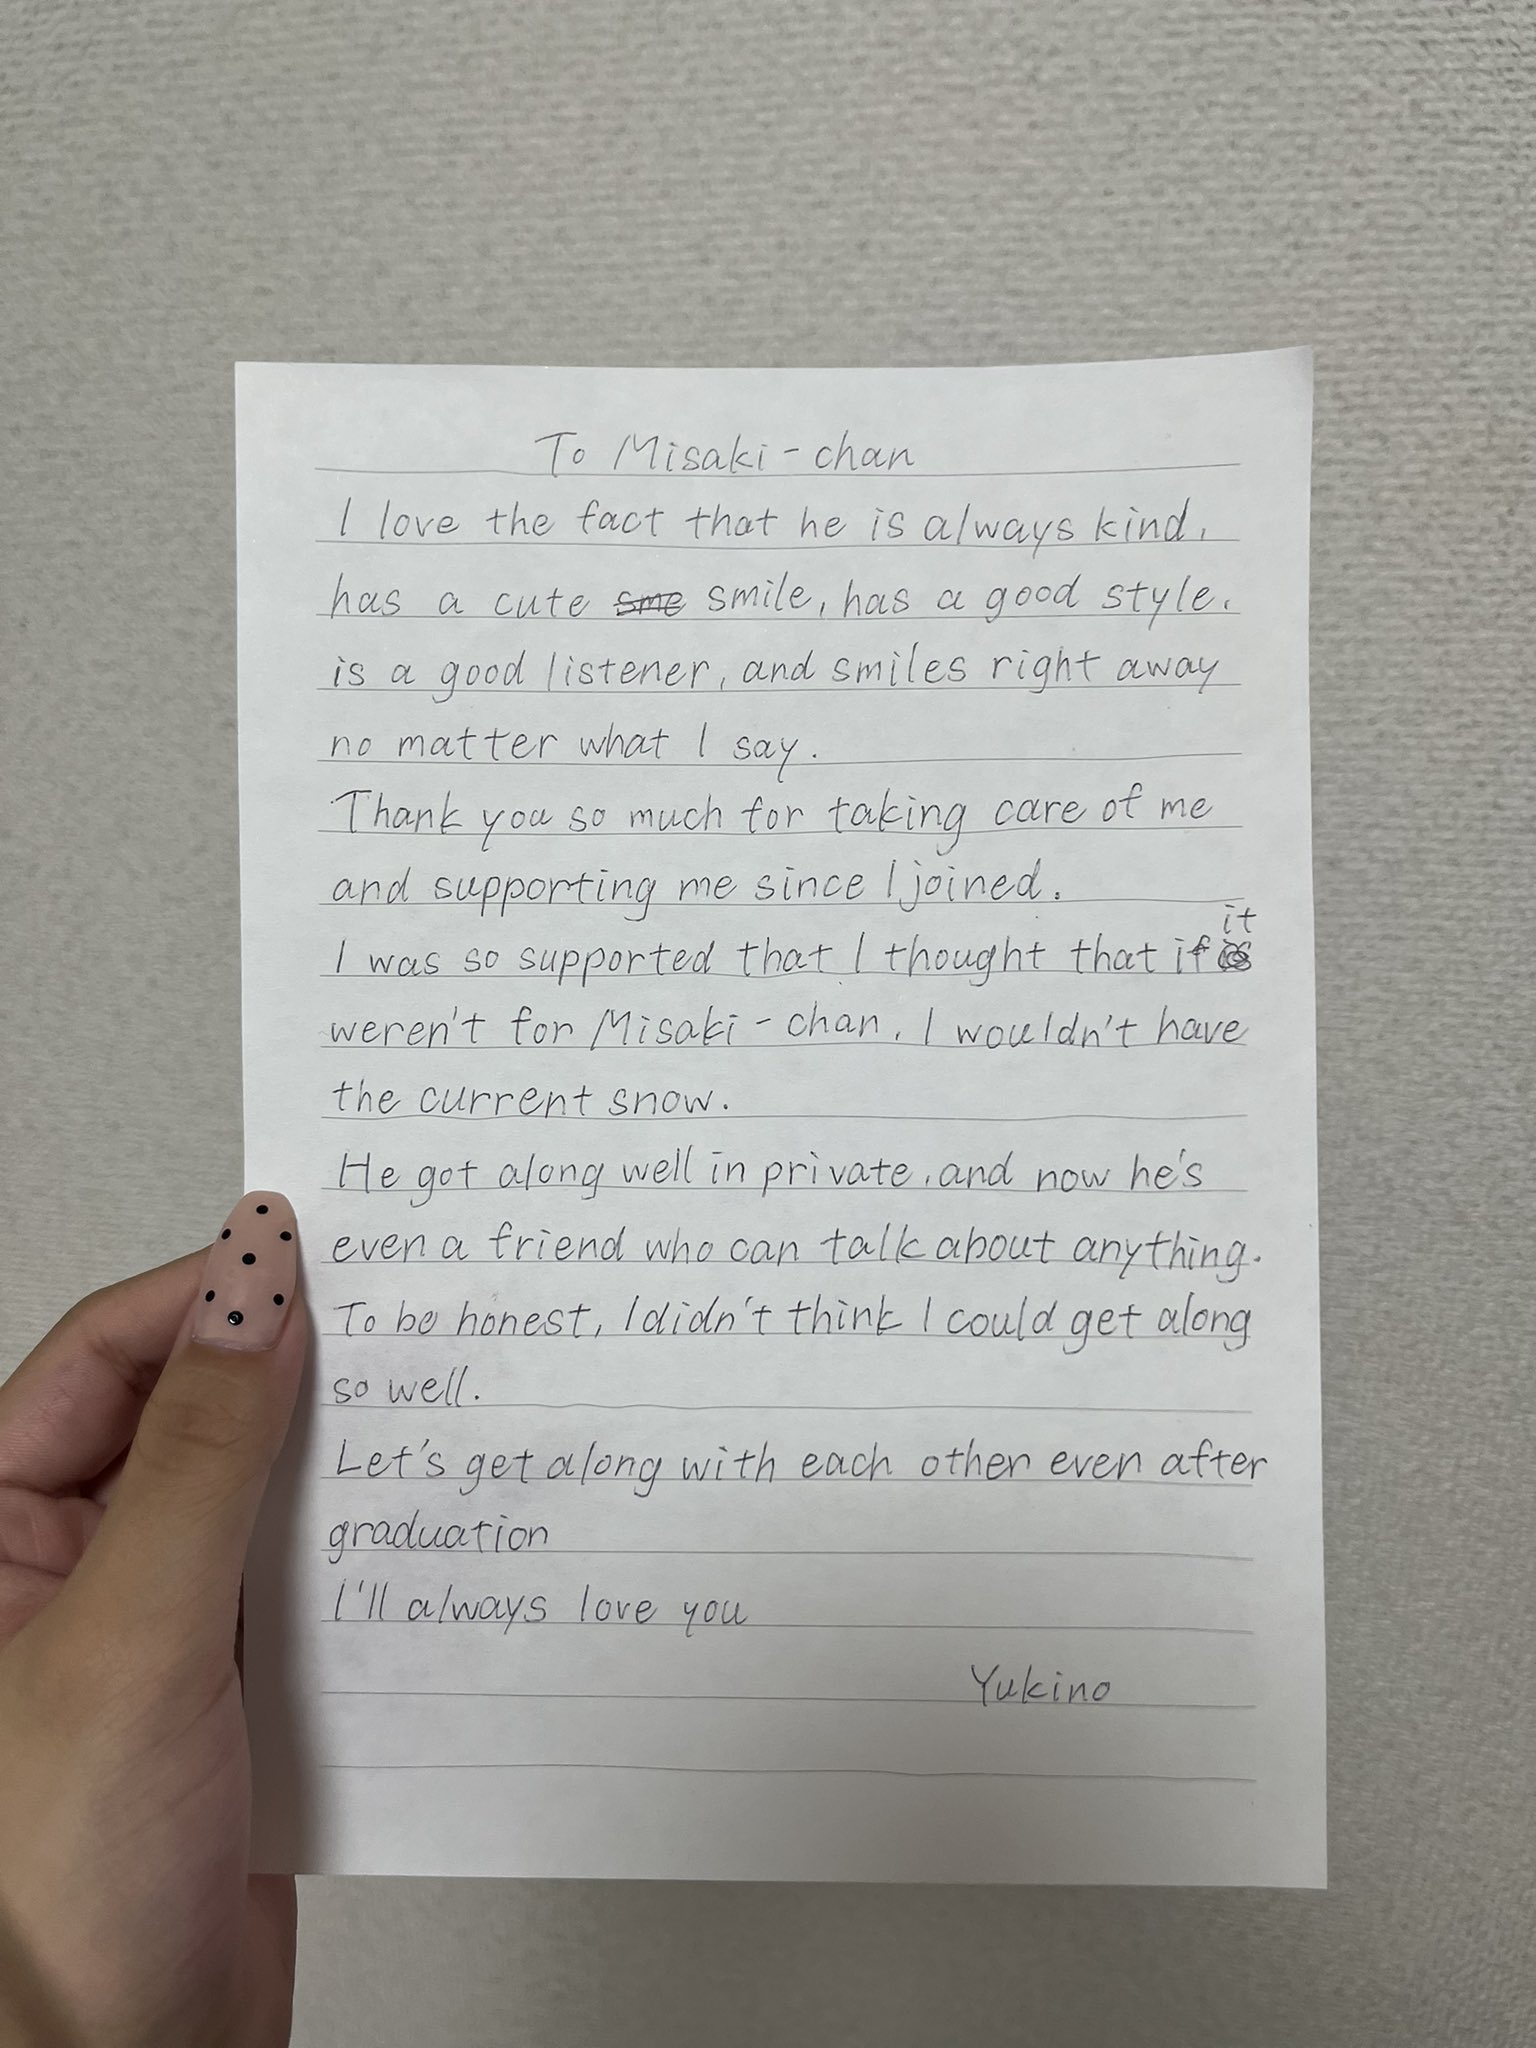 To Misaki-chan
I love the fact that he is always kind,
has a cute sme smile, has a good style,
is a good listener, and smiles right away
no matter what I say.
Thank you so much for taking care of me
and supporting me since I joined.
it
I was so supported that I thought that if
weren't for Misaki-chan, I wouldn't have
the current snow.
He got along well in private, and now he's
even a friend who can talk about anything.
To be honest, I didn't think I could get along
so well.
Let's get along with each other even after
graduation
I'll always love you
Yukino